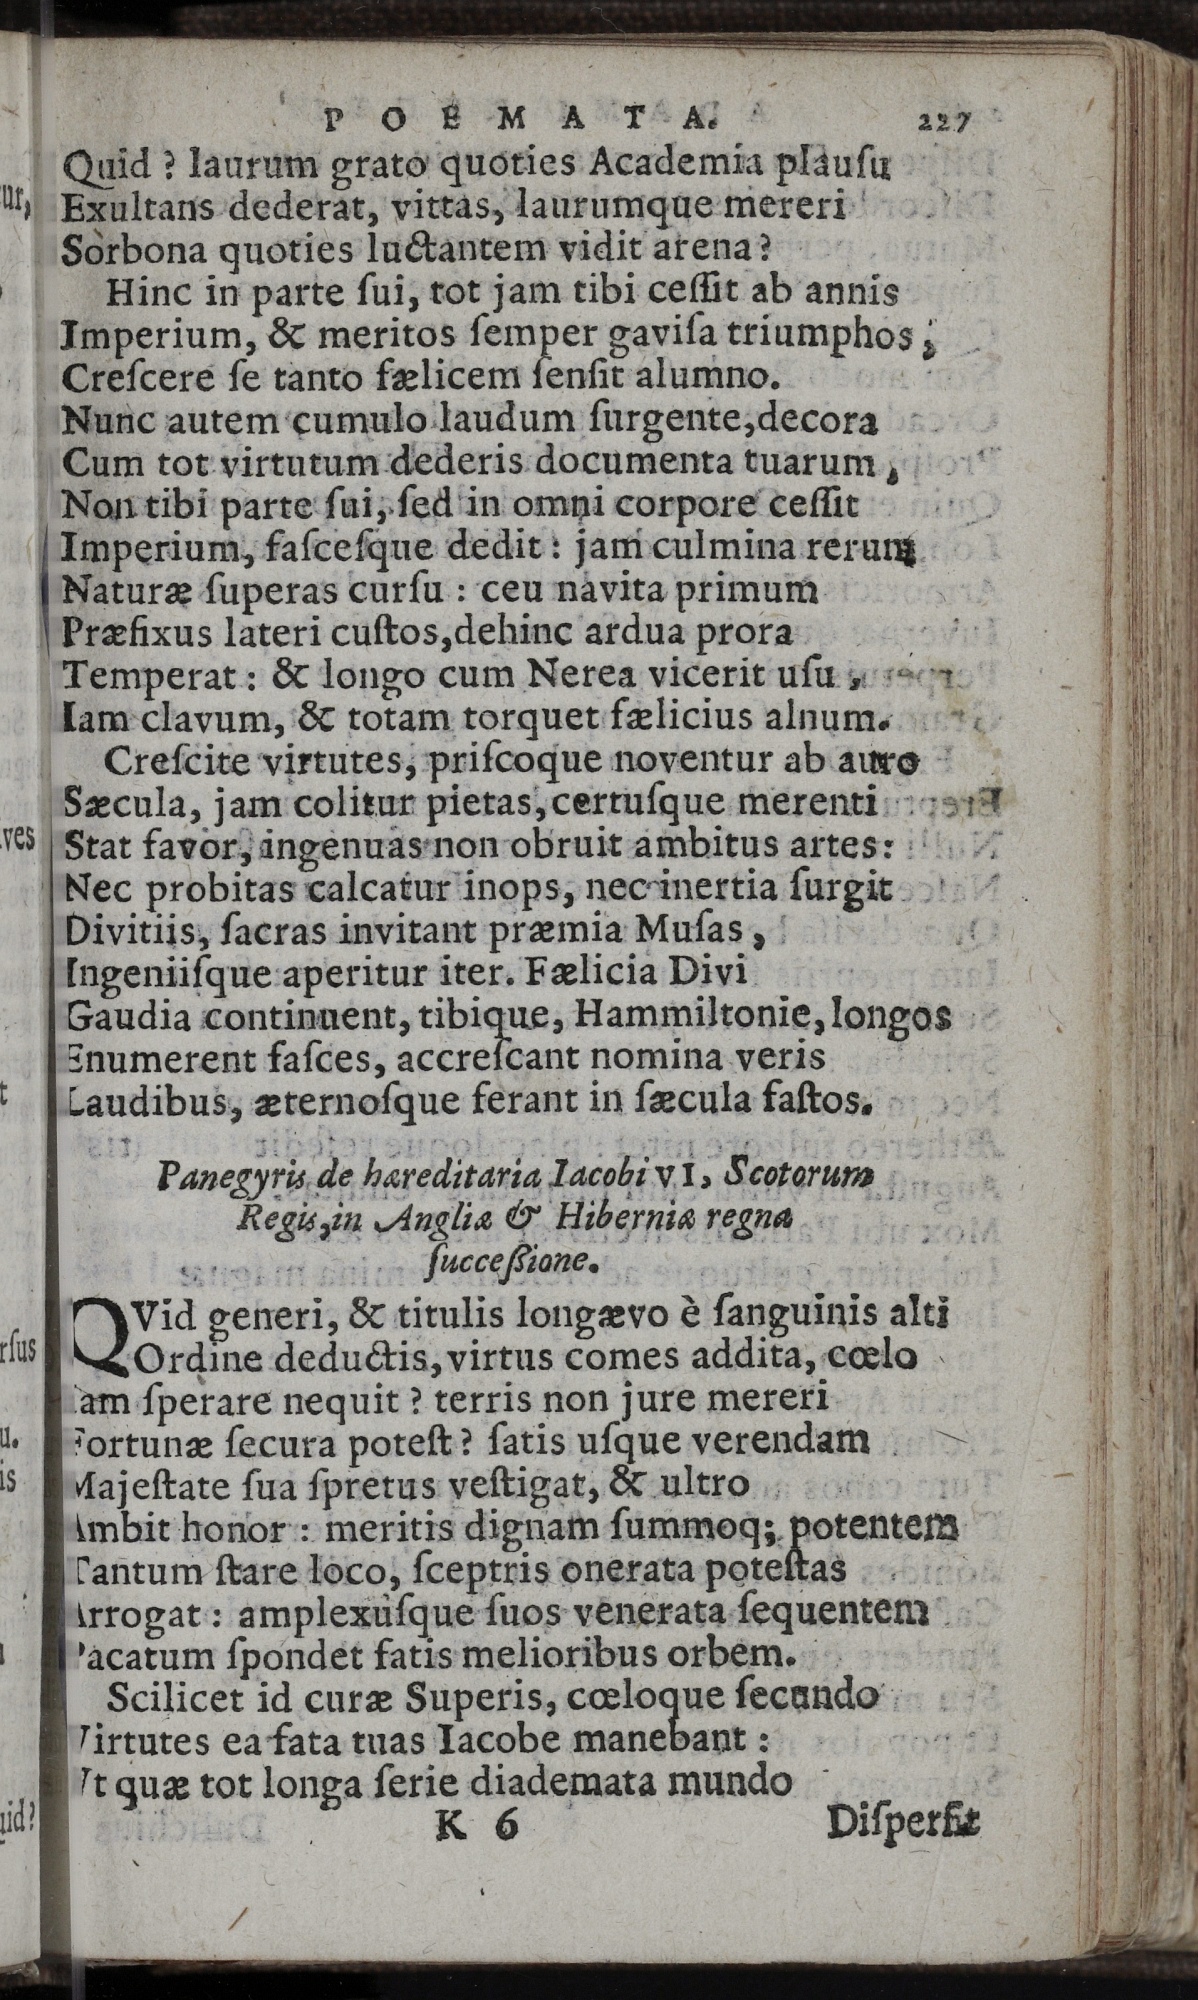 POEMATA. 227
Quid ? laurum grato quoties Academia plauſu
Exultans dederat, vittas, laurumque mereri
Sorbona quoties luctantem vidit arena?
Hinc in parte ſui, tot jam tibi ceſſit ab annis
Imperium, & meritos ſemper gaviſa triumphos ;
Creſcere ſe tanto fælicem ſenſit alumno.
Nunc autem cumulo laudum ſurgente, decora
Cum tot virtutum dederis documenta tuarum ,
Non tibi parte ſui, ſed in omni corpore ceſſit
Imperium, faſceſque dedit : jam culmina rerum
Naturæ ſuperas curſu : ceu navita primum
Præfixus lateri cuſtos, dehinc ardua prora
Temperat : & longo cum Nerea vicerit uſu ,
Iam clavum, & totam torquet fælicius alnum.
Creſcite virtutes, priſcoque noventur ab auro
Sæcula, jam colitur pietas, certuſque merenti
Stat favor, ingenuas non obruit ambitus artes :
Nec probitas calcatur inops, nec inertia ſurgit
Divitiis, ſacras invitant præmia Muſas ,
Ingeniiſque aperitur iter. Fælicia Divi
Gaudia continuent, tibique, Hammiltonie, longos
Enumerent faſces, accreſcant nomina veris
Laudibus, æternoſque ferant in ſæcula faſtos.
Panegyris de hæreditaria Iacobi VI, Scotorum
Regis, in Angliæ & Hiberniæ regna
ſucceſſione.
QVid generi, & titulis longævo è ſanguinis alti
Ordine deductis, virtus comes addita, cœlo
Iam ſperare nequit ? terris non jure mereri
Fortunæ ſecura poteſt ? ſatis uſque verendam
Majeſtate ſua ſpretus veſtigat, & ultro
Ambit honor : meritis dignam ſummoq; potentem
Tantum ſtare loco, ſceptris onerata poteſtas
Arrogat : amplexùſque ſuos venerata ſequentem
Pacatum ſpondet fatis melioribus orbem.
Scilicet id curæ Superis, cœloque ſecundo
Virtutes ea fata tuas Iacobe manebant :
Vt quæ tot longa ſerie diademata mundo
K 6 Diſperſit